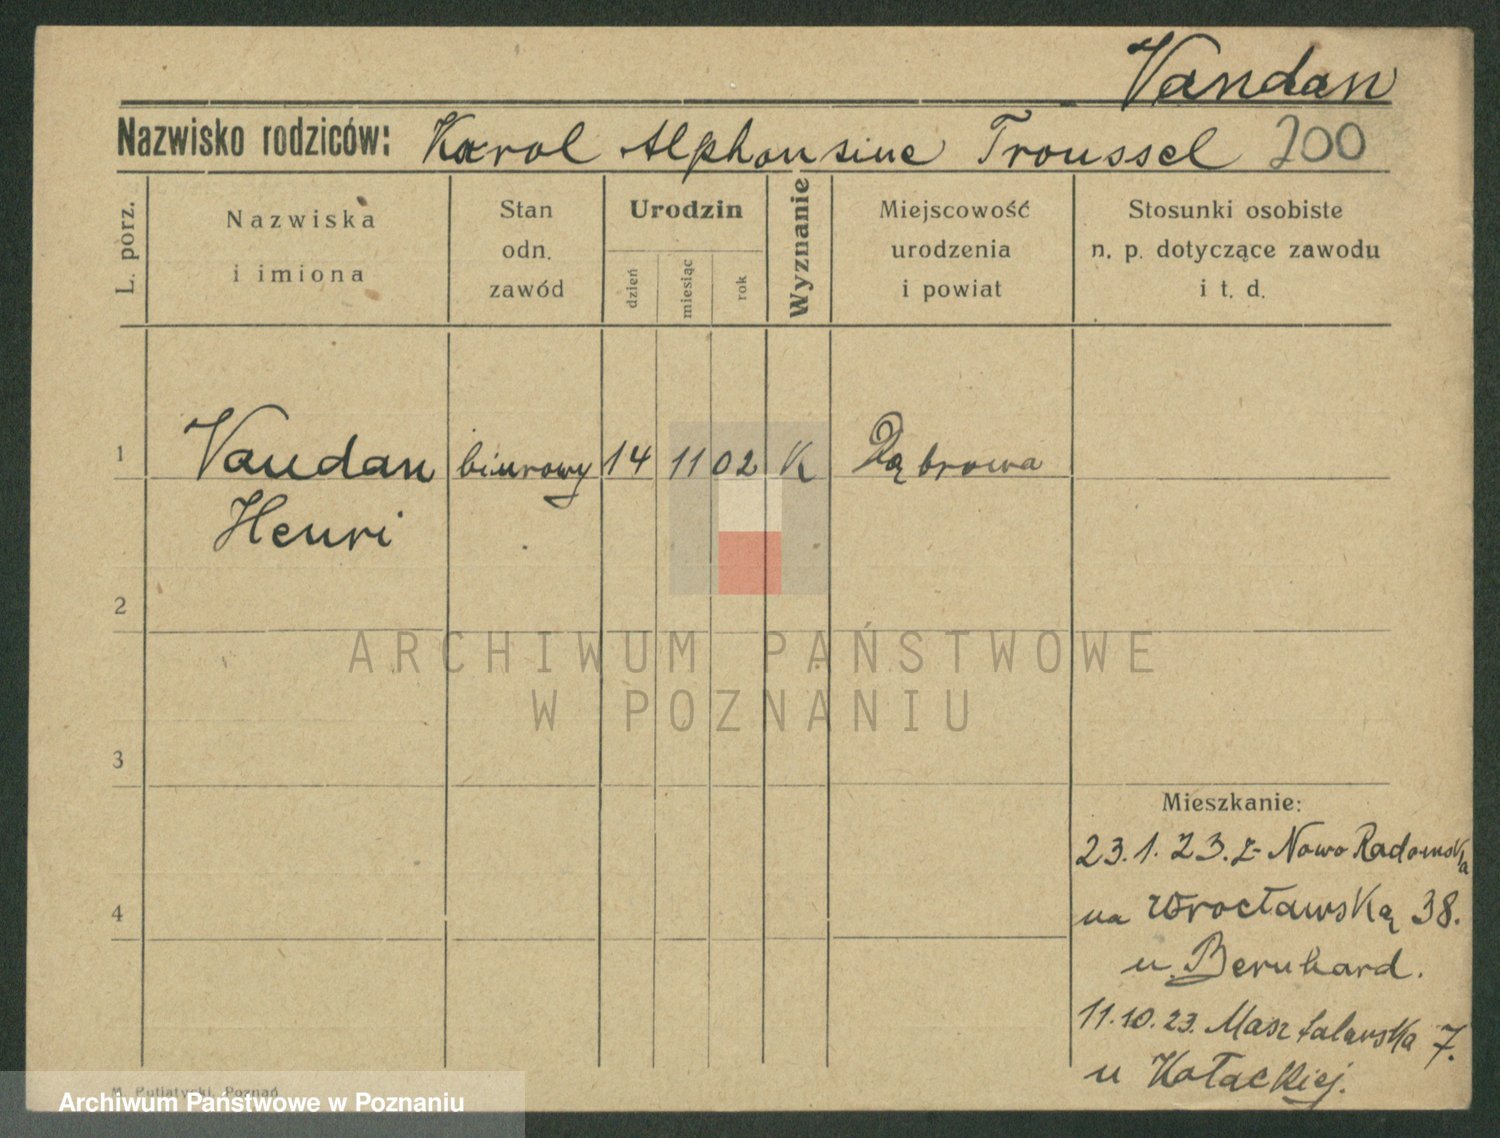 Vandan
Nazwisko rodziców: Karol Alphonsine Troussel 200
L. porz.
Nazwiska
i imiona
Stan
odn.
zawód
Urodzin
dzień
miesiąc
rok
Wyznanie
Miejscowość
urodzenia
i powiat
Stosunki osobiste
n. p. dotyczące zawodu
i t. d.
1 Vandan biurowy 14 11 02 K Dąbrowa
Henri
2
3
4
Mieszkanie:
23.1.23. z Nowo Radomska
na Wrocławską 38.
u Bernhard.
11.10.23. Masztalarska 7.
u Kołackiej.
M. Putiatycki, Poznań
ARCHIWUM PAŃSTWOWE
W POZNANIU
Archiwum Państwowe w Poznaniu